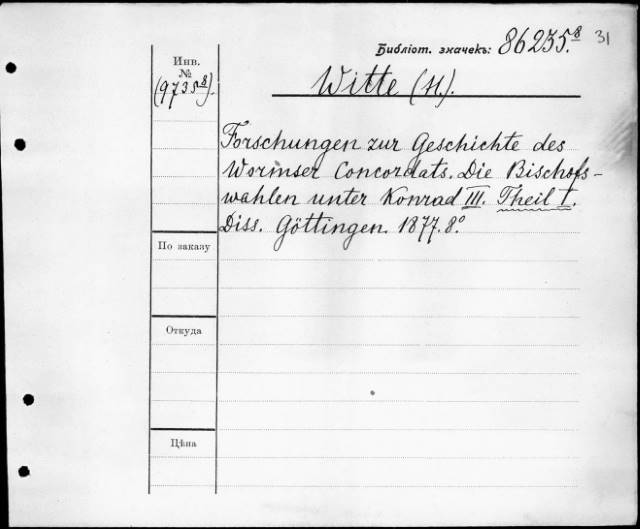 Библіот. значекъ: 86235.⁸ 31
Инв.
№
(9735⁸).
Witte (H.).
Forschungen zur Geschichte des
Wormser Concordats. Die Bischofs-
wahlen unter Konrad III. Theil I.
Diss. Göttingen. 1877. 8°.
По заказу
Откуда
Цѣна